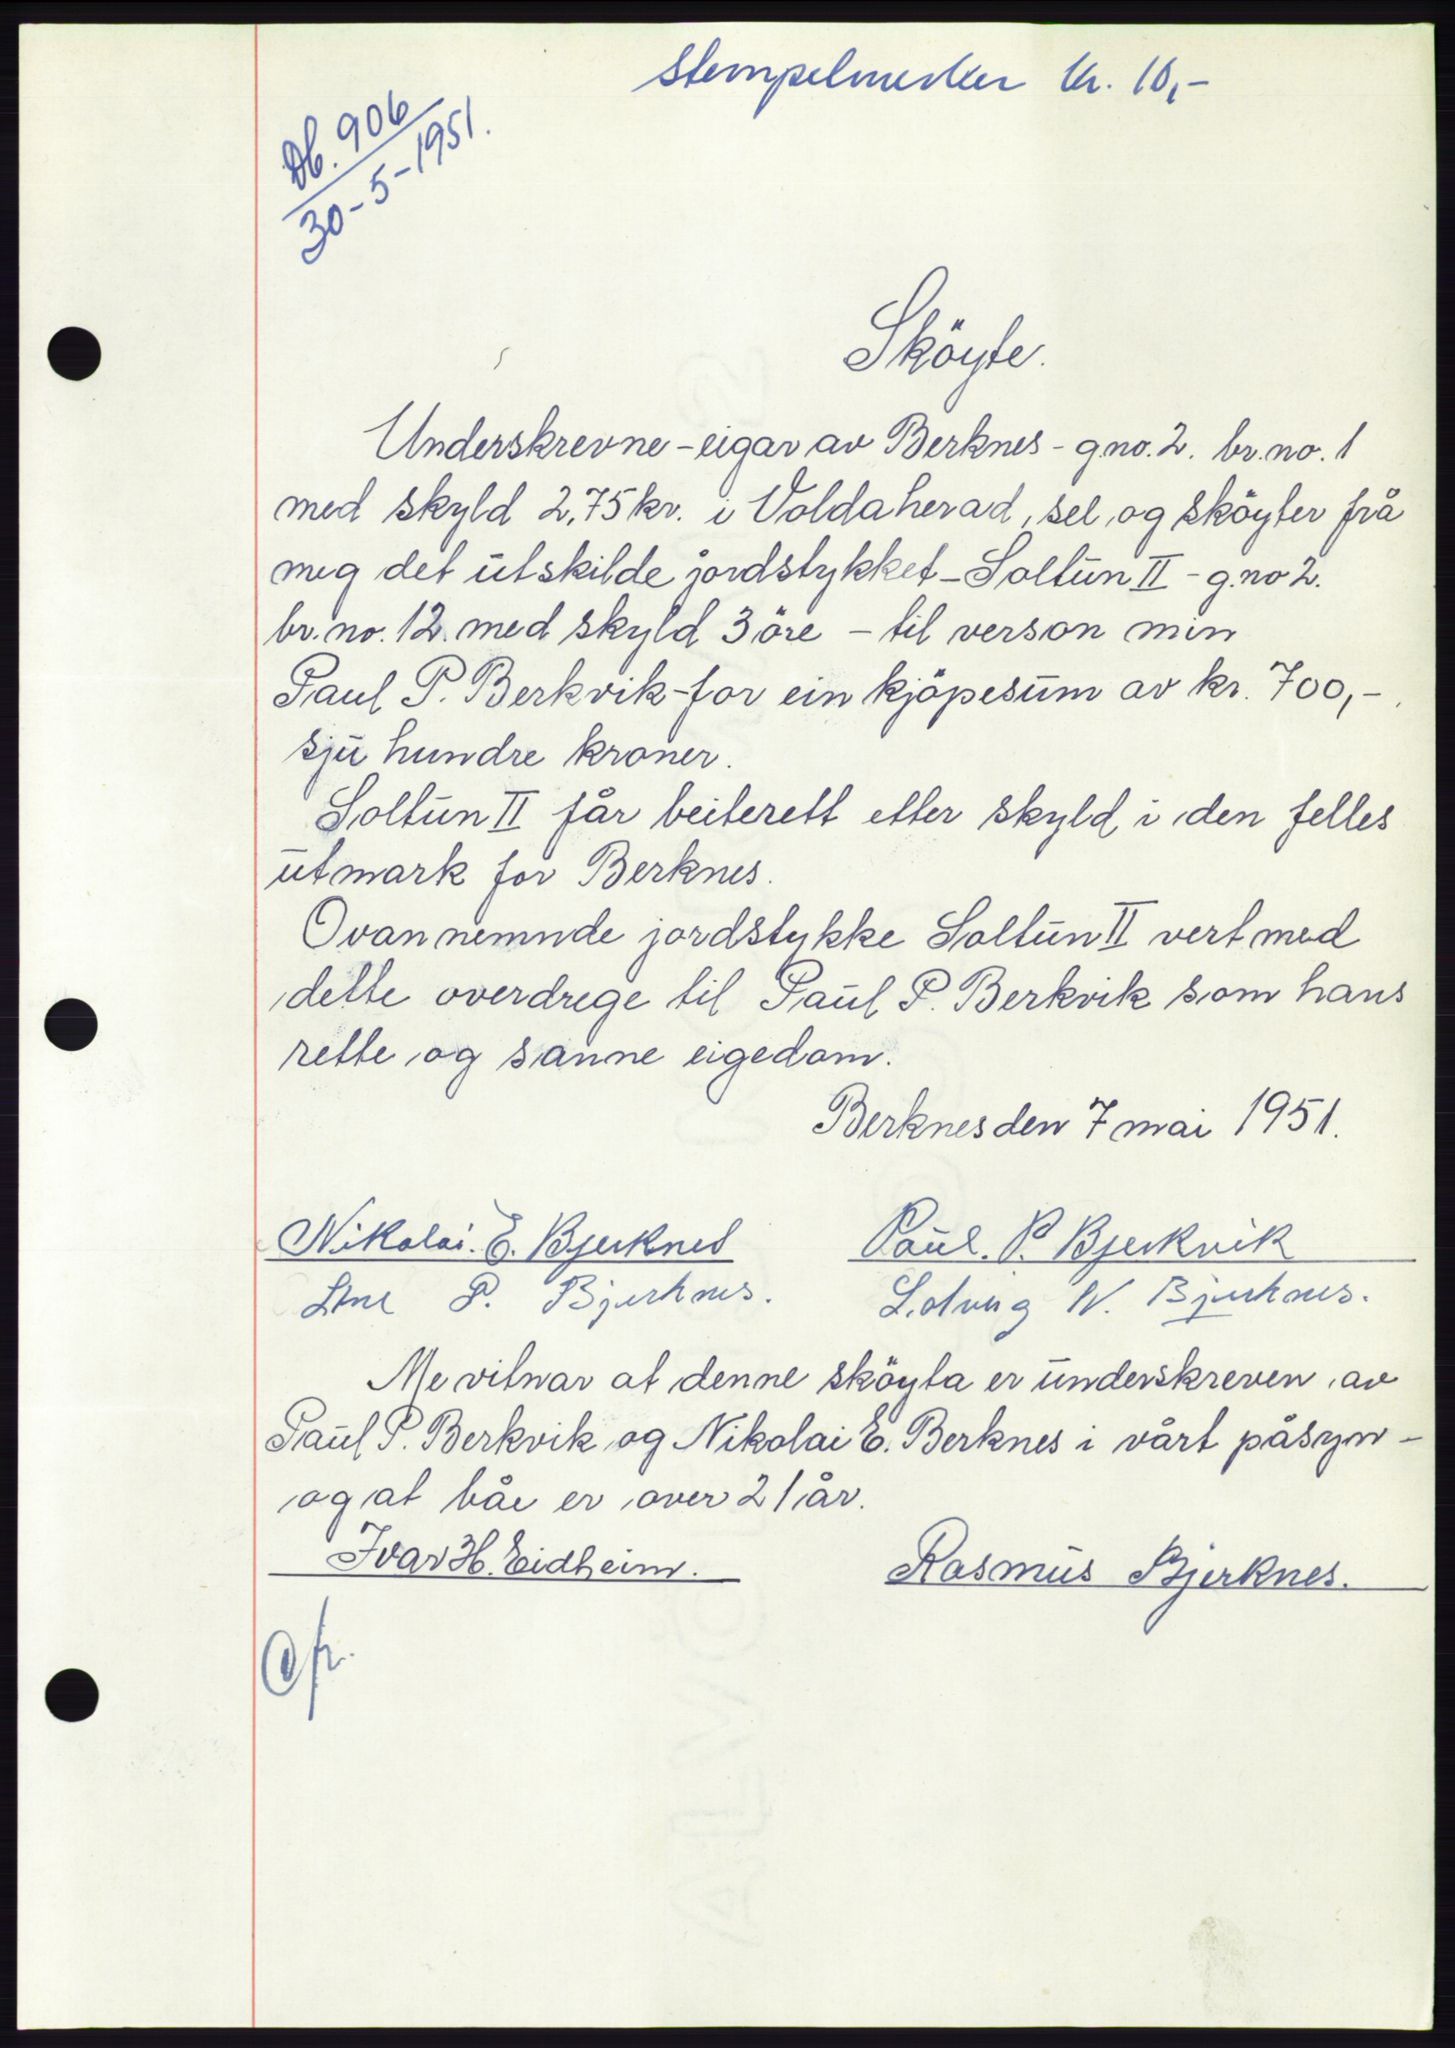 Stempelmerker kr. 10,-
Db. 906
30-5-1951.
Sköyte.
Underskrevne - eigar av Berknes - g.no. 2. br.no. 1
med skyld 2,75 kr. i Volda herad, sel og sköyter frå
meg det utskilde jordstykket - Soltun II - g.no 2.
br.no. 12. med skyld 3 öre - til verson min
Paul P. Berkvik - for ein kjöpesum av kr. 700,-
sju hundre kroner.
Soltun II får beiterett etter skyld i den felles
utmark for Berknes.
Ovannemnde jordstykke Soltun II vert med
dette overdrege til Paul P. Berkvik som hans
rette og sanne eigedom.
Berknes den 7 mai 1951.
Nikolai. E. Bjerknes Paul. P. Bjerkvik
P. Bjerknes. N. Bjerknes.
Me vitnar at denne sköyta er underskreven av
Paul P. Berkvik og Nikolai E. Berknes i vårt påsyn -
og at båe er over 21 år.
Ivar H. Eidheim. Rasmus Bjerknes.